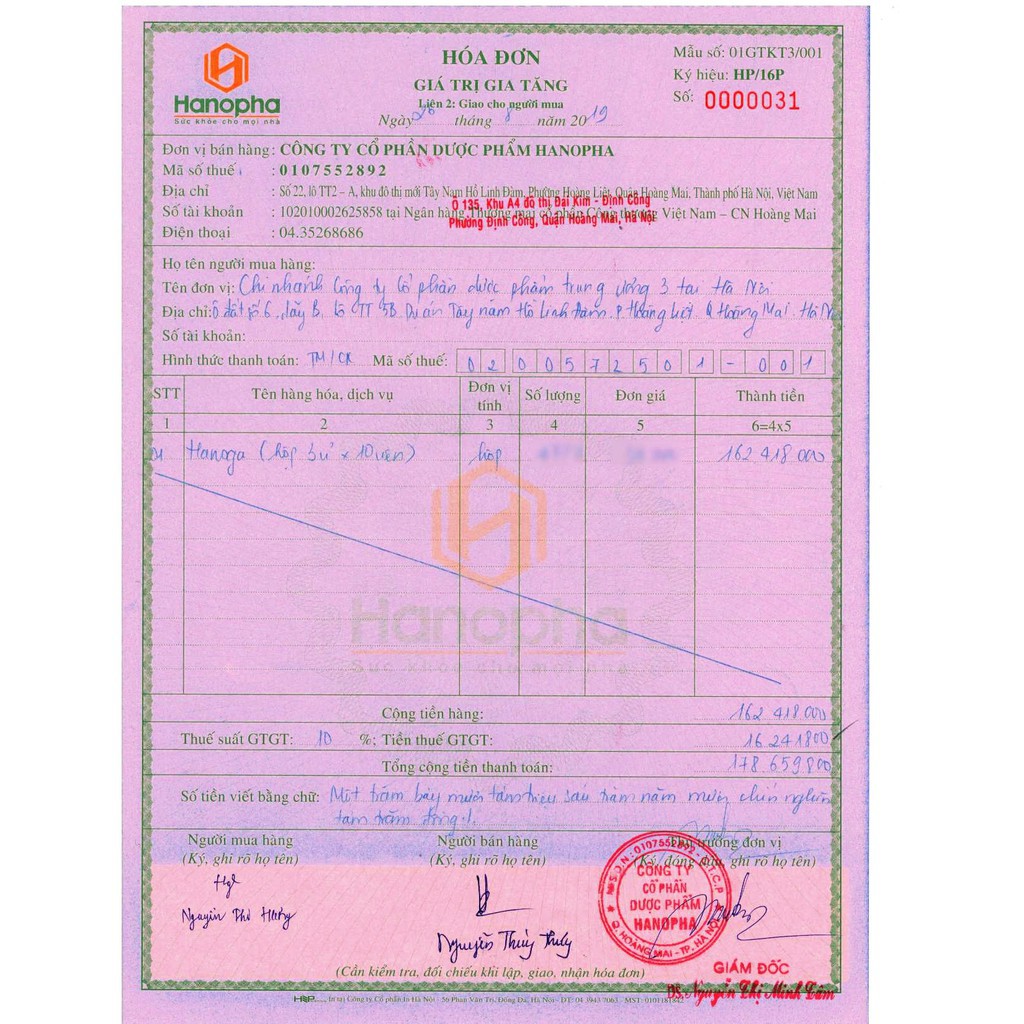 Hanopha
Sức khỏe cho mọi nhà
HÓA ĐƠN
GIÁ TRỊ GIA TĂNG
Liên 2: Giao cho người mua
Ngày 26 tháng 8 năm 2019
Mẫu số: 01GTKT3/001
Ký hiệu: HP/16P
Số: 0000031
Đơn vị bán hàng: CÔNG TY CỔ PHẦN DƯỢC PHẨM HANOPHA
Mã số thuế : 0107552892
Địa chỉ : Số 22, lô TT2 – A, khu đô thị mới Tây Nam Hồ Linh Đàm, Phường Hoàng Liệt, Quận Hoàng Mai, Thành phố Hà Nội, Việt Nam
Ô 135, Khu A4 đô thị Đại Kim - Định Công
Phường Định Công, Quận Hoàng Mai, Hà Nội
Số tài khoản : 102010002625858 tại Ngân hàng Thương mại cổ phần Công thương Việt Nam – CN Hoàng Mai
Điện thoại : 04.35268686
Họ tên người mua hàng:
Tên đơn vị: Chi nhánh Công ty Cổ phần dược phẩm trung ương 3 tại Hà Nội
Địa chỉ: Ô đất số 6, dãy B, lô TT 5B Dự án Tây nam Hồ Linh Đàm. P. Hoàng Liệt. Q Hoàng Mai. Hà N
Số tài khoản:
Hình thức thanh toán: TM/CK Mã số thuế: 0200572501-001
STT Tên hàng hóa, dịch vụ Đơn vị tính Số lượng Đơn giá Thành tiền
1 2 3 4 5 6=4x5
01 Hanoga (hộp 3 vỉ x 10 viên) hộp 162 418 000
Hanopha
Sức khỏe cho mọi nhà
Cộng tiền hàng: 162 418 000
Thuế suất GTGT: 10 %; Tiền thuế GTGT: 16 241 800
Tổng cộng tiền thanh toán: 178 659 800
Số tiền viết bằng chữ: Một trăm bảy mươi tám triệu sáu trăm năm mươi chín nghìn
tám trăm đồng./.
Người mua hàng Người bán hàng Thủ trưởng đơn vị
(Ký, ghi rõ họ tên) (Ký, ghi rõ họ tên) (Ký, đóng dấu, ghi rõ họ tên)
M.S.D.N: 0107552892 - C.T.C.P
CÔNG TY
CỔ PHẦN
DƯỢC PHẨM
HANOPHA
Q. HOÀNG MAI - TP. HÀ NỘI
Nguyễn Thị
Nguyễn Thúy
GIÁM ĐỐC
DS. Nguyễn Thị Minh Tâm
(Cần kiểm tra, đối chiếu khi lập, giao, nhận hóa đơn)
In tại Công ty Cổ phần In Hà Nội - 36 Phan Văn Trị, Đống Đa, Hà Nội - ĐT: 04 3943 7063 - MST: 0101181842